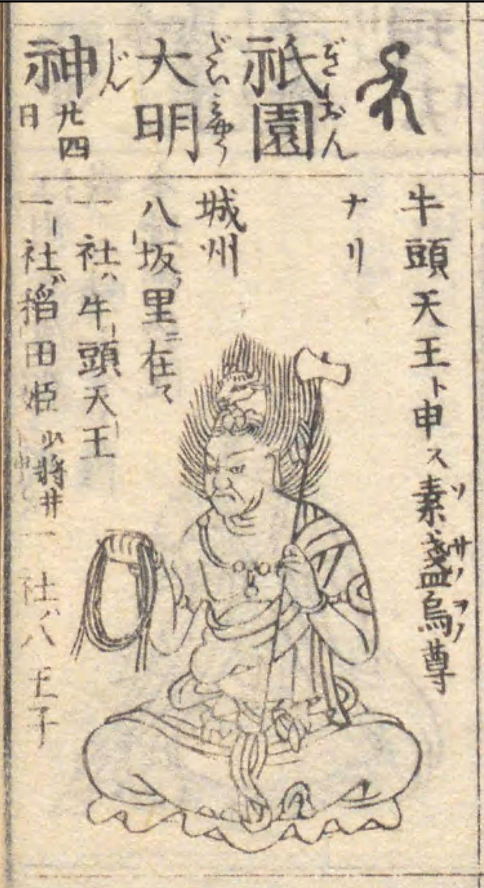 祇園
大明
神 廿四日
ぎおん
だいミやう
じん
牛頭天王ト申ス素盞烏尊
ソサノヲノ
ナリ
城州
八坂里ニ在テ
一社ハ牛頭天王
一社ハ稲田姫 少将井 一社ハ八王子